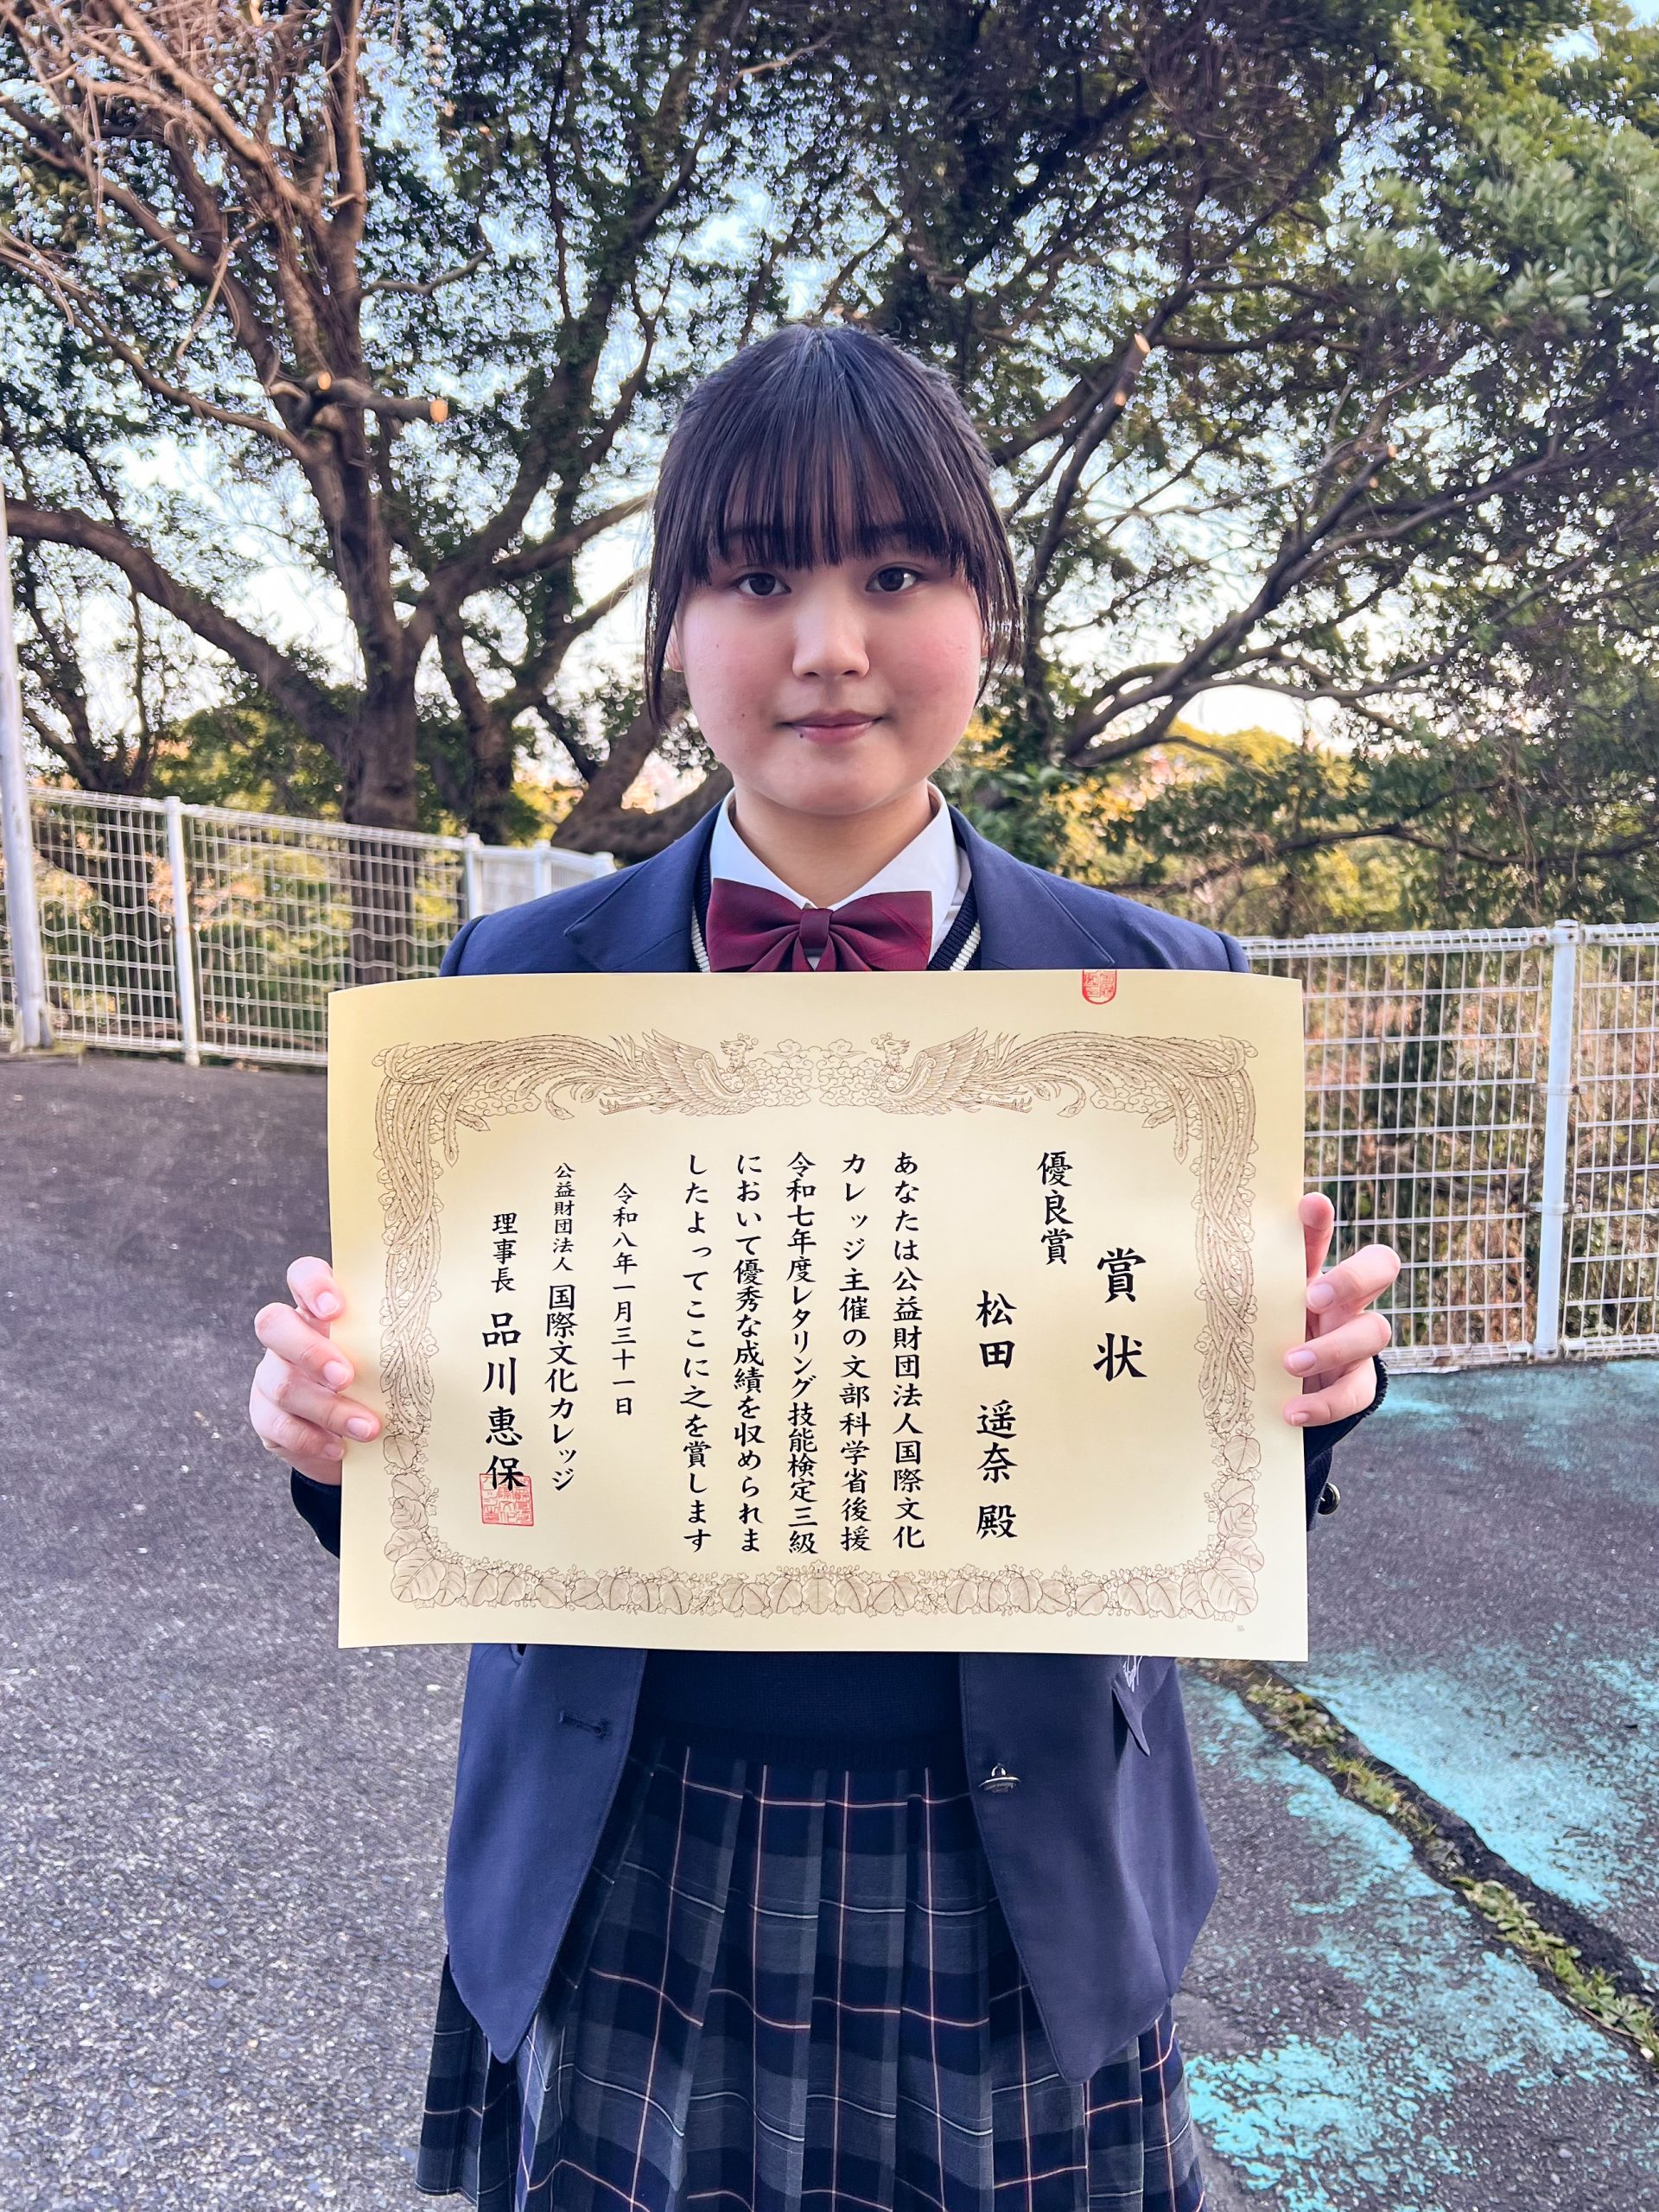 賞状
優良賞
松田 遥奈 殿
あなたは公益財団法人国際文化
カレッジ主催の文部科学省後援
令和七年度レタリング技能検定三級
において優秀な成績を収められま
したよってここに之を賞します
令和八年一月三十一日
公益財団法人 国際文化カレッジ
理事長 品川惠保